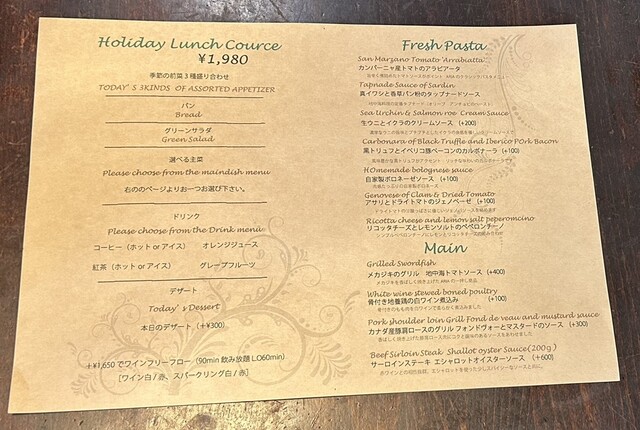 Holiday Lunch Cource
¥1,980
季節の前菜３種盛り合わせ
TODAY'S 3KINDS OF ASSORTED APPETIZER
パン
Bread
グリーンサラダ
Green Salad
選べる主菜
Please choose from the maindish menu
右ののページよりお一つお選び下さい。
ドリンク
Please choose from the Drink menu
コーヒー（ホット or アイス）　オレンジジュース
紅茶（ホット or アイス）　グレープフルーツ
デザート
Today's Dessert
本日のデザート（+¥300）
+¥1,650でワインフリーフロー（90min 飲み放題 LO60min）
［ワイン白/赤、スパークリング白/赤］
Fresh Pasta
San Marzano Tomato 'Arrabiatta'
カンパーニャ産トマトのアラビアータ
Tapnade Sauce of Sardin
真イワシと香草パン粉のタップナードソース
Sea Urchin & Salmon roe Cream Sauce
生ウニとイクラのクリームソース （+200）
Carbonara of Black Truffle and Iberico POrk Bacon
黒トリュフとイベリコ豚ベーコンのカルボナーラ （+100）
HOmemade bolognese sauce
自家製ボロネーゼソース （+100）
Genovese of Clam & Dried Tomato
アサリとドライトマトのジェノベーゼ （+100）
Ricotta cheese and lemon salt peperoncino
リコッタチーズとレモンソルトのペペロンチーノ
Main
Grilled Swordfish
メカジキのグリル　地中海トマトソース （+400）
White wine stewed boned poultry
骨付き地養鶏の白ワイン煮込み （+100）
Pork shoulder loin Grill Fond de veau and mustard sauce
カナダ産豚肩ロースのグリル フォンドヴォーとマスタードのソース （+300）
Beef Sirloin Steak Shallot oyster Sauce (200g)
サーロインステーキ エシャロットオイスターソース （+600）